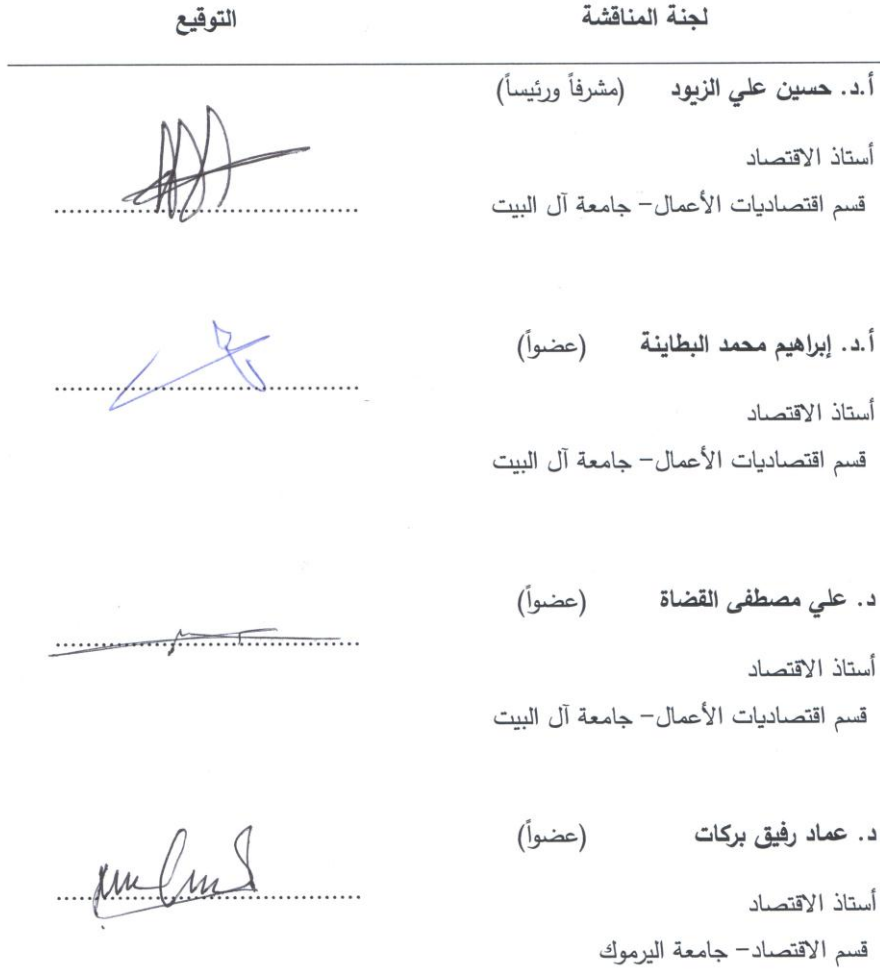 لجنة المناقشة التوقيع
أ.د. حسين علي الزيود (مشرفاً ورئيساً)
أستاذ الاقتصاد
قسم اقتصاديات الأعمال– جامعة آل البيت
أ.د. إبراهيم محمد البطاينة (عضواً)
أستاذ الاقتصاد
قسم اقتصاديات الأعمال– جامعة آل البيت
د. علي مصطفى القضاة (عضواً)
أستاذ الاقتصاد
قسم اقتصاديات الأعمال– جامعة آل البيت
د. عماد رفيق بركات (عضواً)
أستاذ الاقتصاد
قسم الاقتصاد– جامعة اليرموك